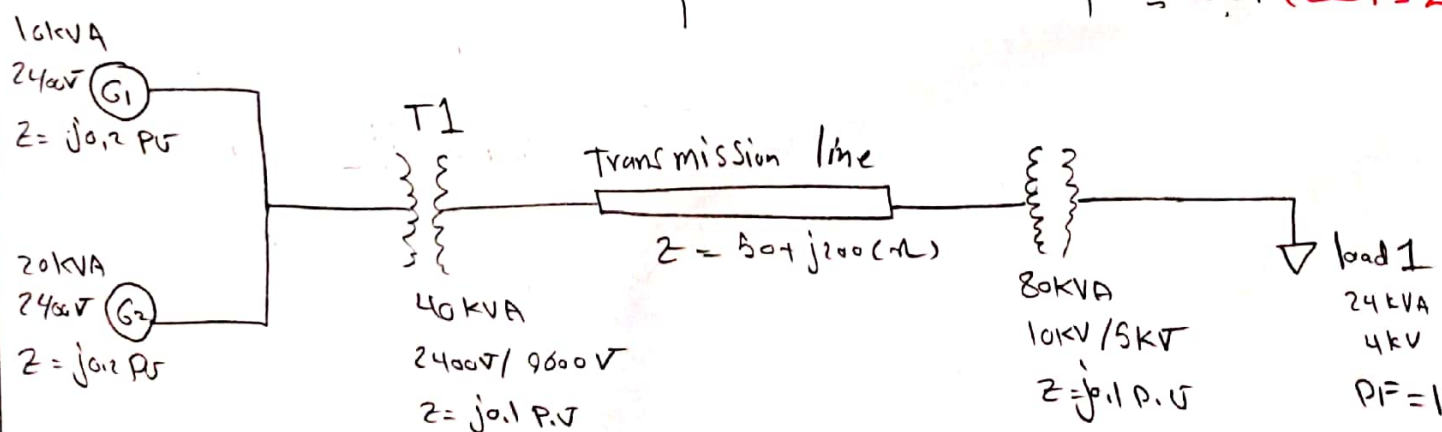 10kVA
2400V G1
Z = j0,2 PU
20KVA
2400V G2
Z = j0,2 PU
T1
40 KVA
2400V / 9600 V
Z = j0.1 P.U
Transmission line
Z = 50 + j200 (Ω)
80KVA
10KV / 5KV
Z = j0.1 P.U
load 1
24 KVA
4 kV
PF = 1